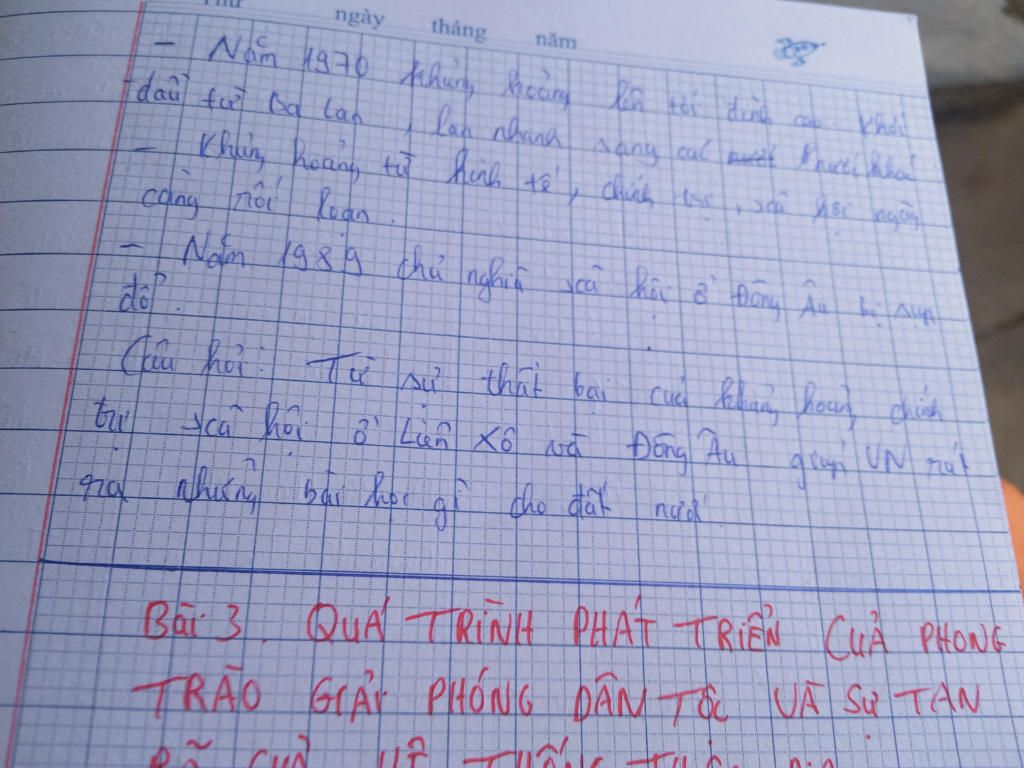 Thứ ngày tháng năm
- Năm 1970 khủng hoảng lên tới đỉnh cao. Khởi
đầu từ Ba Lan, lan nhanh sang các nước khác
- Khủng hoảng từ kinh tế, chính trị, xã hội ngày
càng rối loạn.
- Năm 1989 chủ nghĩa xã hội ở Đông Âu bị sụp
đổ.
Câu hỏi: Từ sự thất bại của khủng hoảng chính
trị xã hội ở Liên Xô và Đông Âu giúp VN rút
ra những bài học gì cho đất nước
Bài 3. QUÁ TRÌNH PHÁT TRIỂN CỦA PHONG
TRÀO GIẢI PHÓNG DÂN TỘC VÀ SỰ TAN
RÃ CỦA HỆ THỐNG